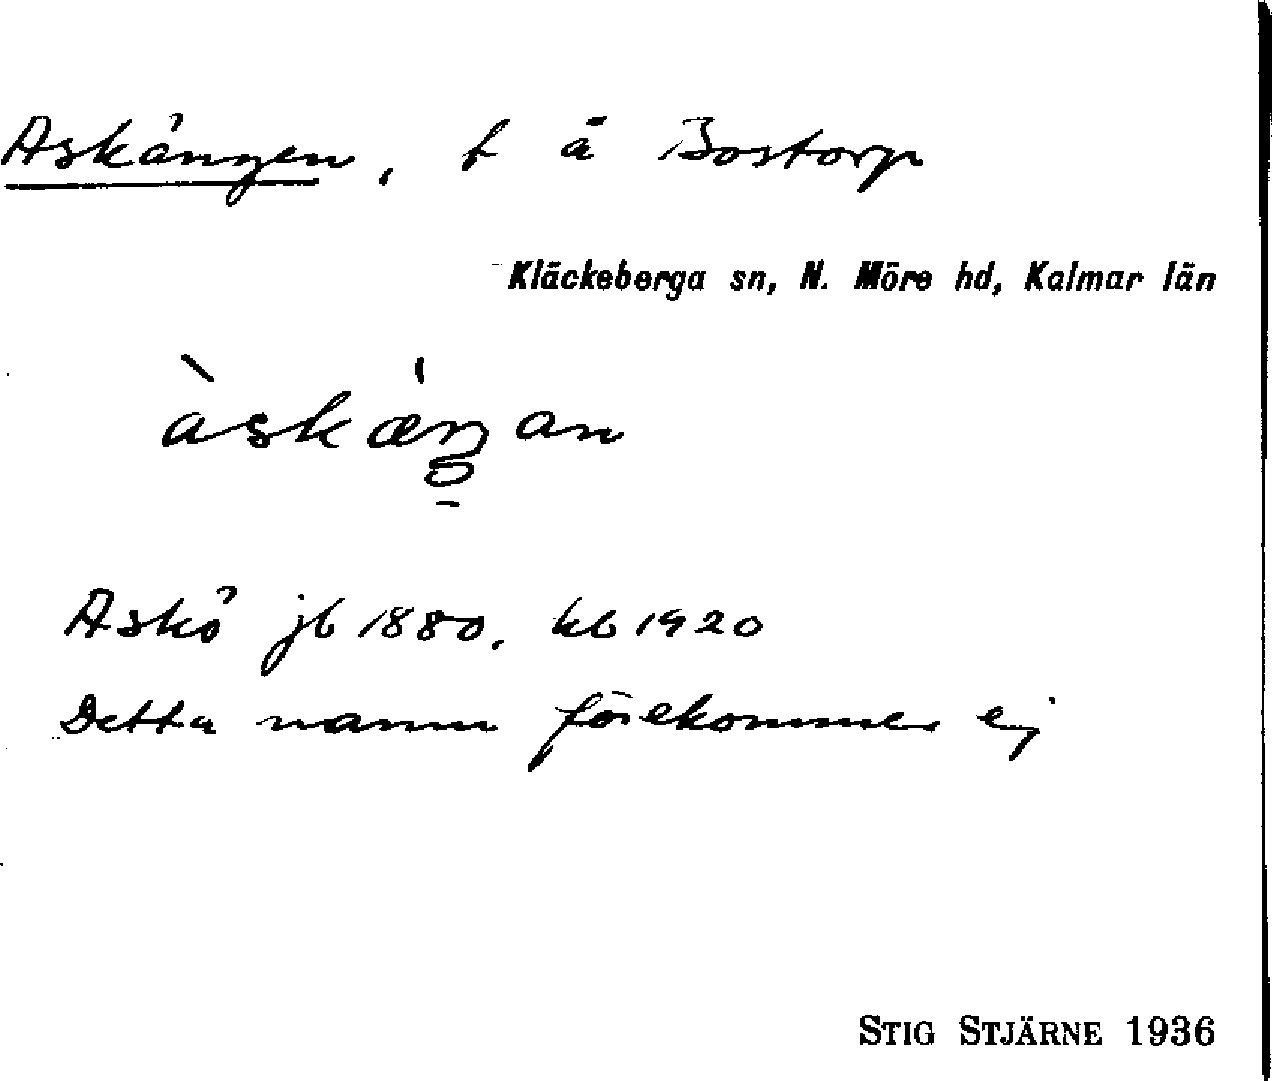 Askängen, t å Bostorp
Kläckeberga sn, N. Möre hd, Kalmar län
Askö jb 1880, kb 1920
Detta namn förekommer ej
STIG STJÄRNE 1936